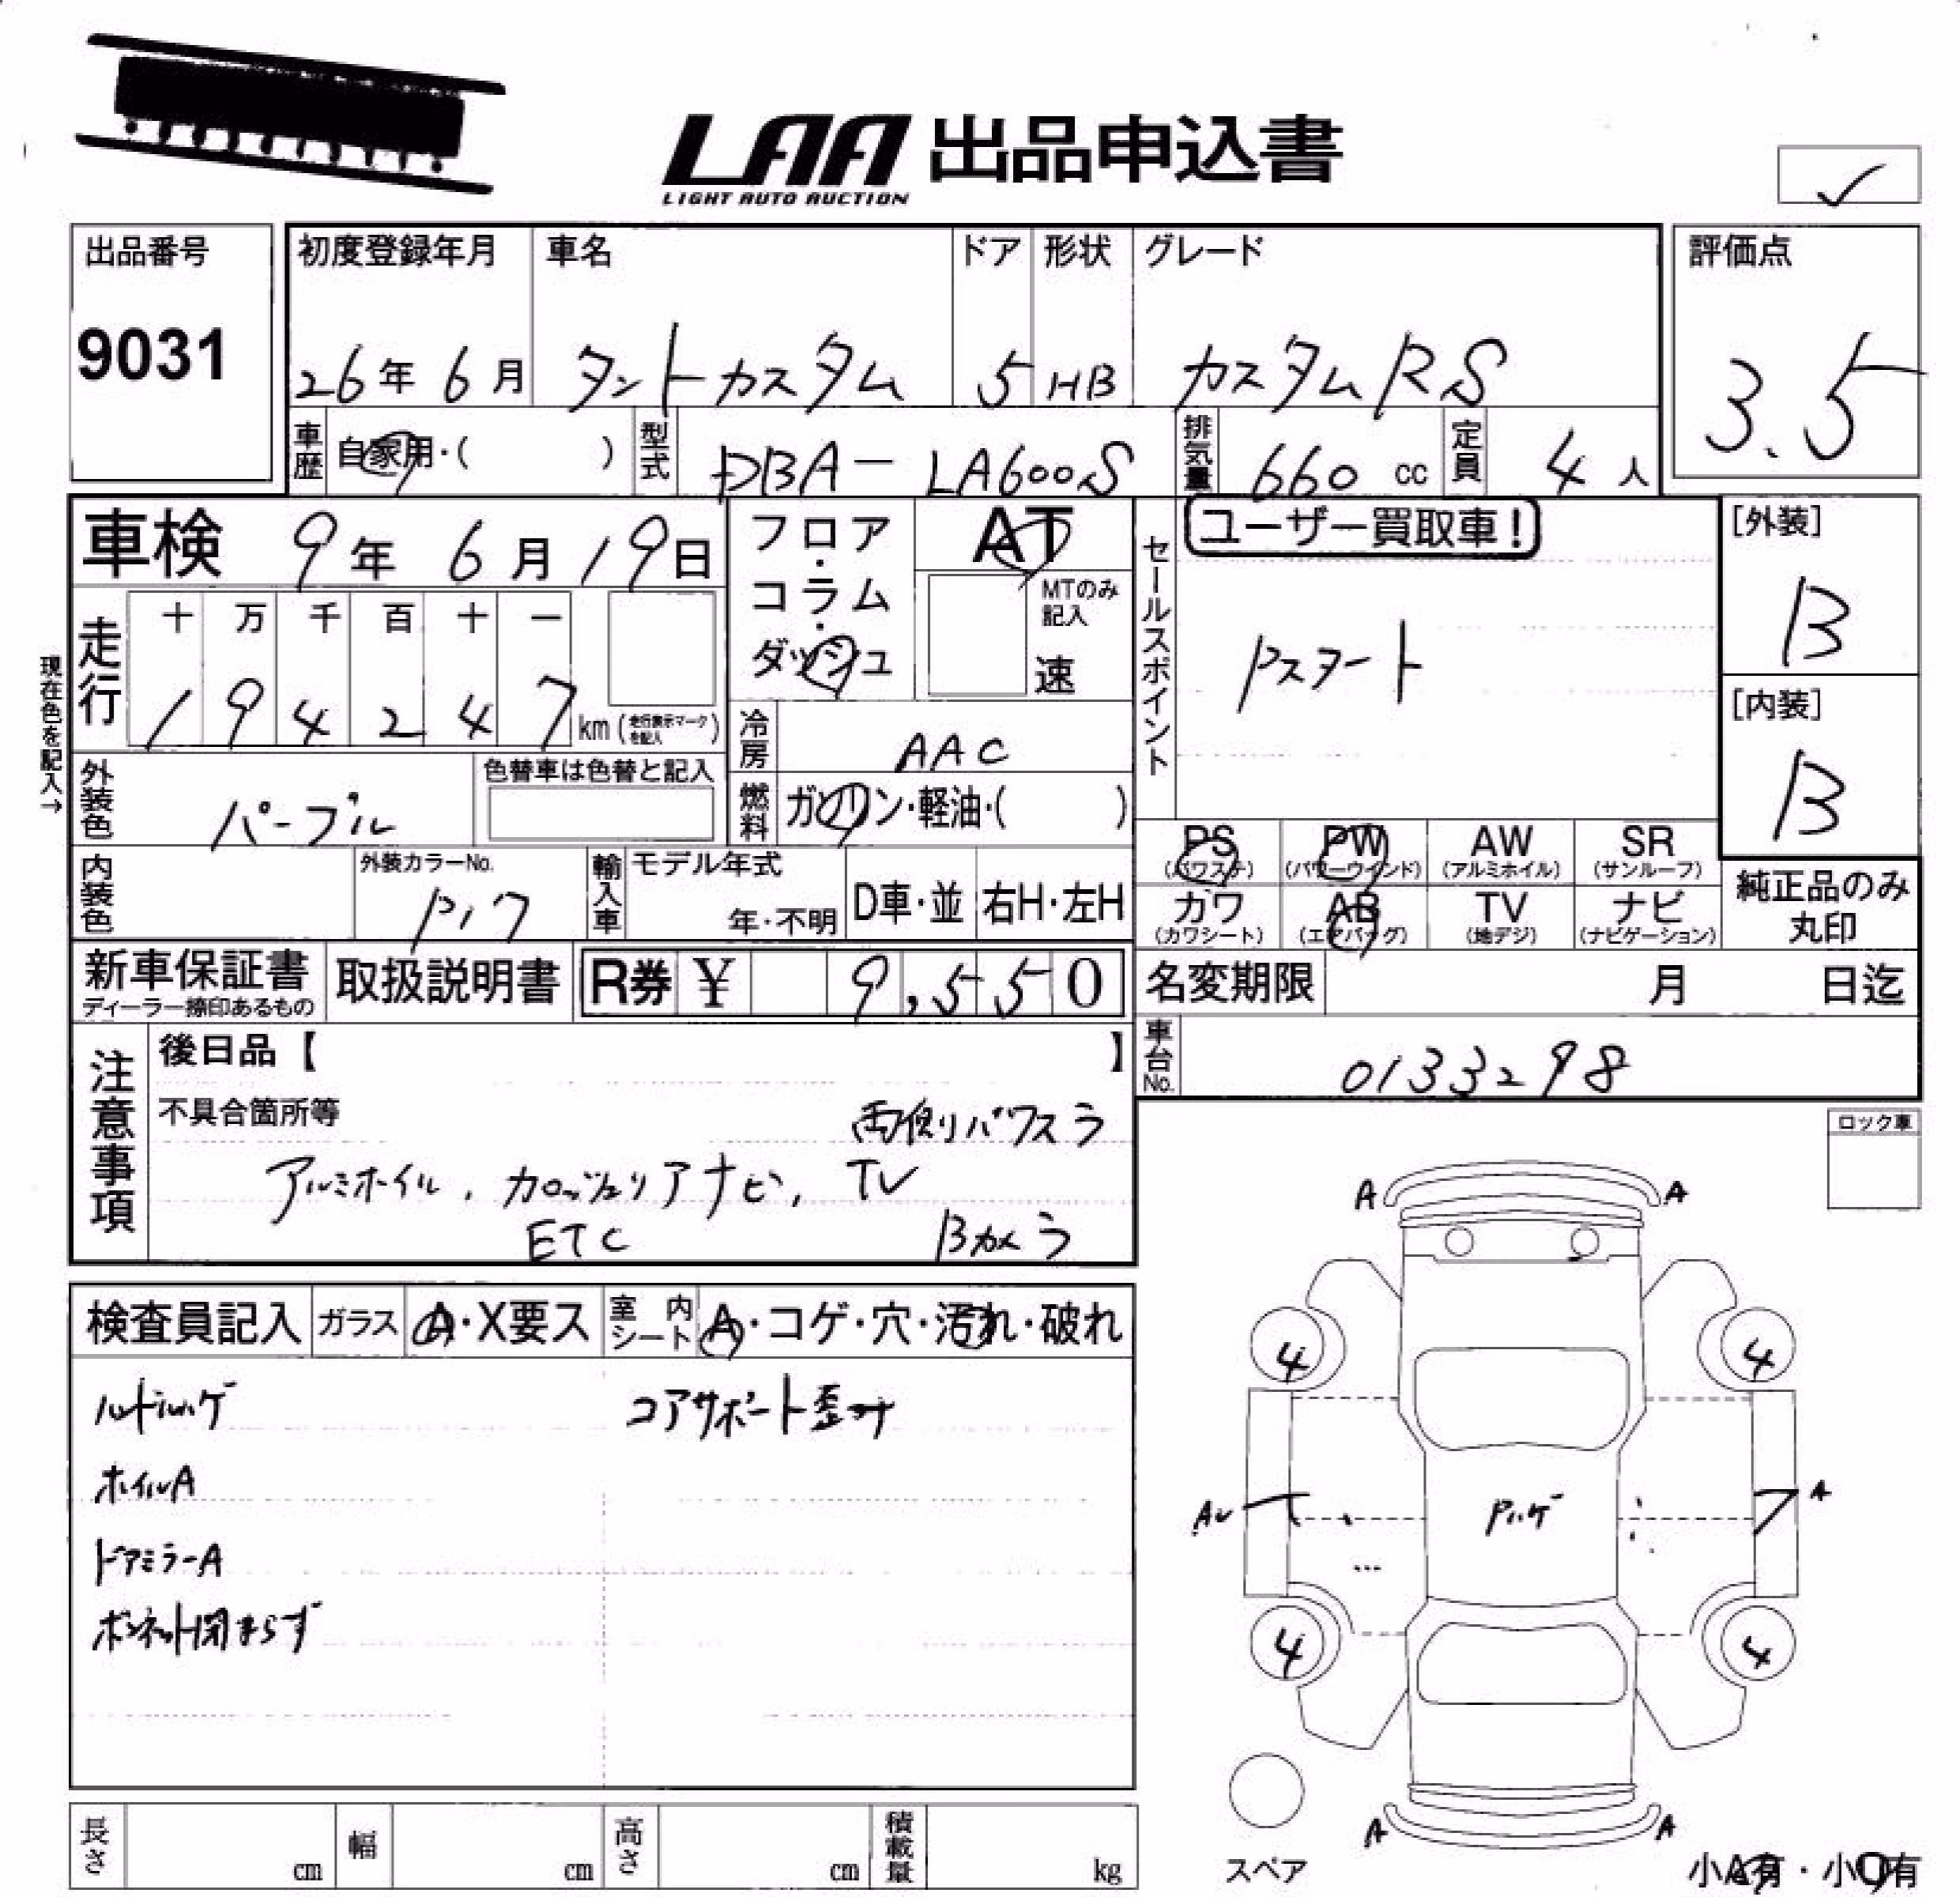 LAA 出品申込書
LIGHT AUTO AUCTION
出品番号
9031
初度登録年月
26年 6月
車名
タントカスタム
ドア
5
形状
HB
グレード
カスタムRS
評価点
3.5
車歴
自家用・( )
型式
DBA-LA600S
排気量
660 cc
定員
4人
車検 9年 6月 19日
現在色を記入→
走行
十 万 千 百 十 一
1 9 4 2 4 7 km (走行表示マークを記入)
フロア・コラム・ダッシュ
AT
MTのみ記入
速
セールスポイント
ユーザー買取車!
Pスタート
[外装]
B
[内装]
B
冷房
AAC
燃料
ガソリン・軽油・( )
外装色
パープル
色替車は色替と記入
内装色
外装カラーNo.
輸入車
モデル年式
年・不明
D車・並
右H・左H
PS (パワステ)
PW (パワーウインド)
AW (アルミホイル)
SR (サンルーフ)
カワ (カワシート)
AB (エアバッグ)
TV (地デジ)
ナビ (ナビゲーション)
純正品のみ丸印
新車保証書
ディーラー捺印あるもの
取扱説明書
R券 ¥ 9,550
名変期限 月 日迄
車台No.
0133298
注意事項
後日品【 】
不具合箇所等
両側パワスラ
アルミホイル, カロッツェリアナビ, TV
ETC Bカメラ
ロック車
検査員記入
ガラス A・X要ス
室内シート A・コゲ・穴・汚れ・破れ
コアサポート歪み
ホイルA
ドアミラーA
ボンネット閉まらず
A A
4 4
A
Pハゲ
4 4
A A
スペア
小A有・小U有
長さ cm
幅 cm
高さ cm
積載量 kg